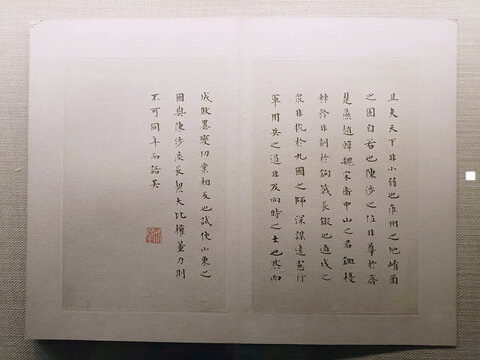 且夫天下非小弱也雍州之地崤函
之固自若也陳涉之位非尊於齊
楚燕趙韓魏宋衛中山之君鋤櫌
棘矜非銛於鉤戟長鎩也適戍之
眾非抗於九國之師深謀遠慮行
軍用兵之道非及向時之士也然而
成敗異變功業相反也試使山東之
國與陳涉度長絜大比權量力則
不可同年而語矣